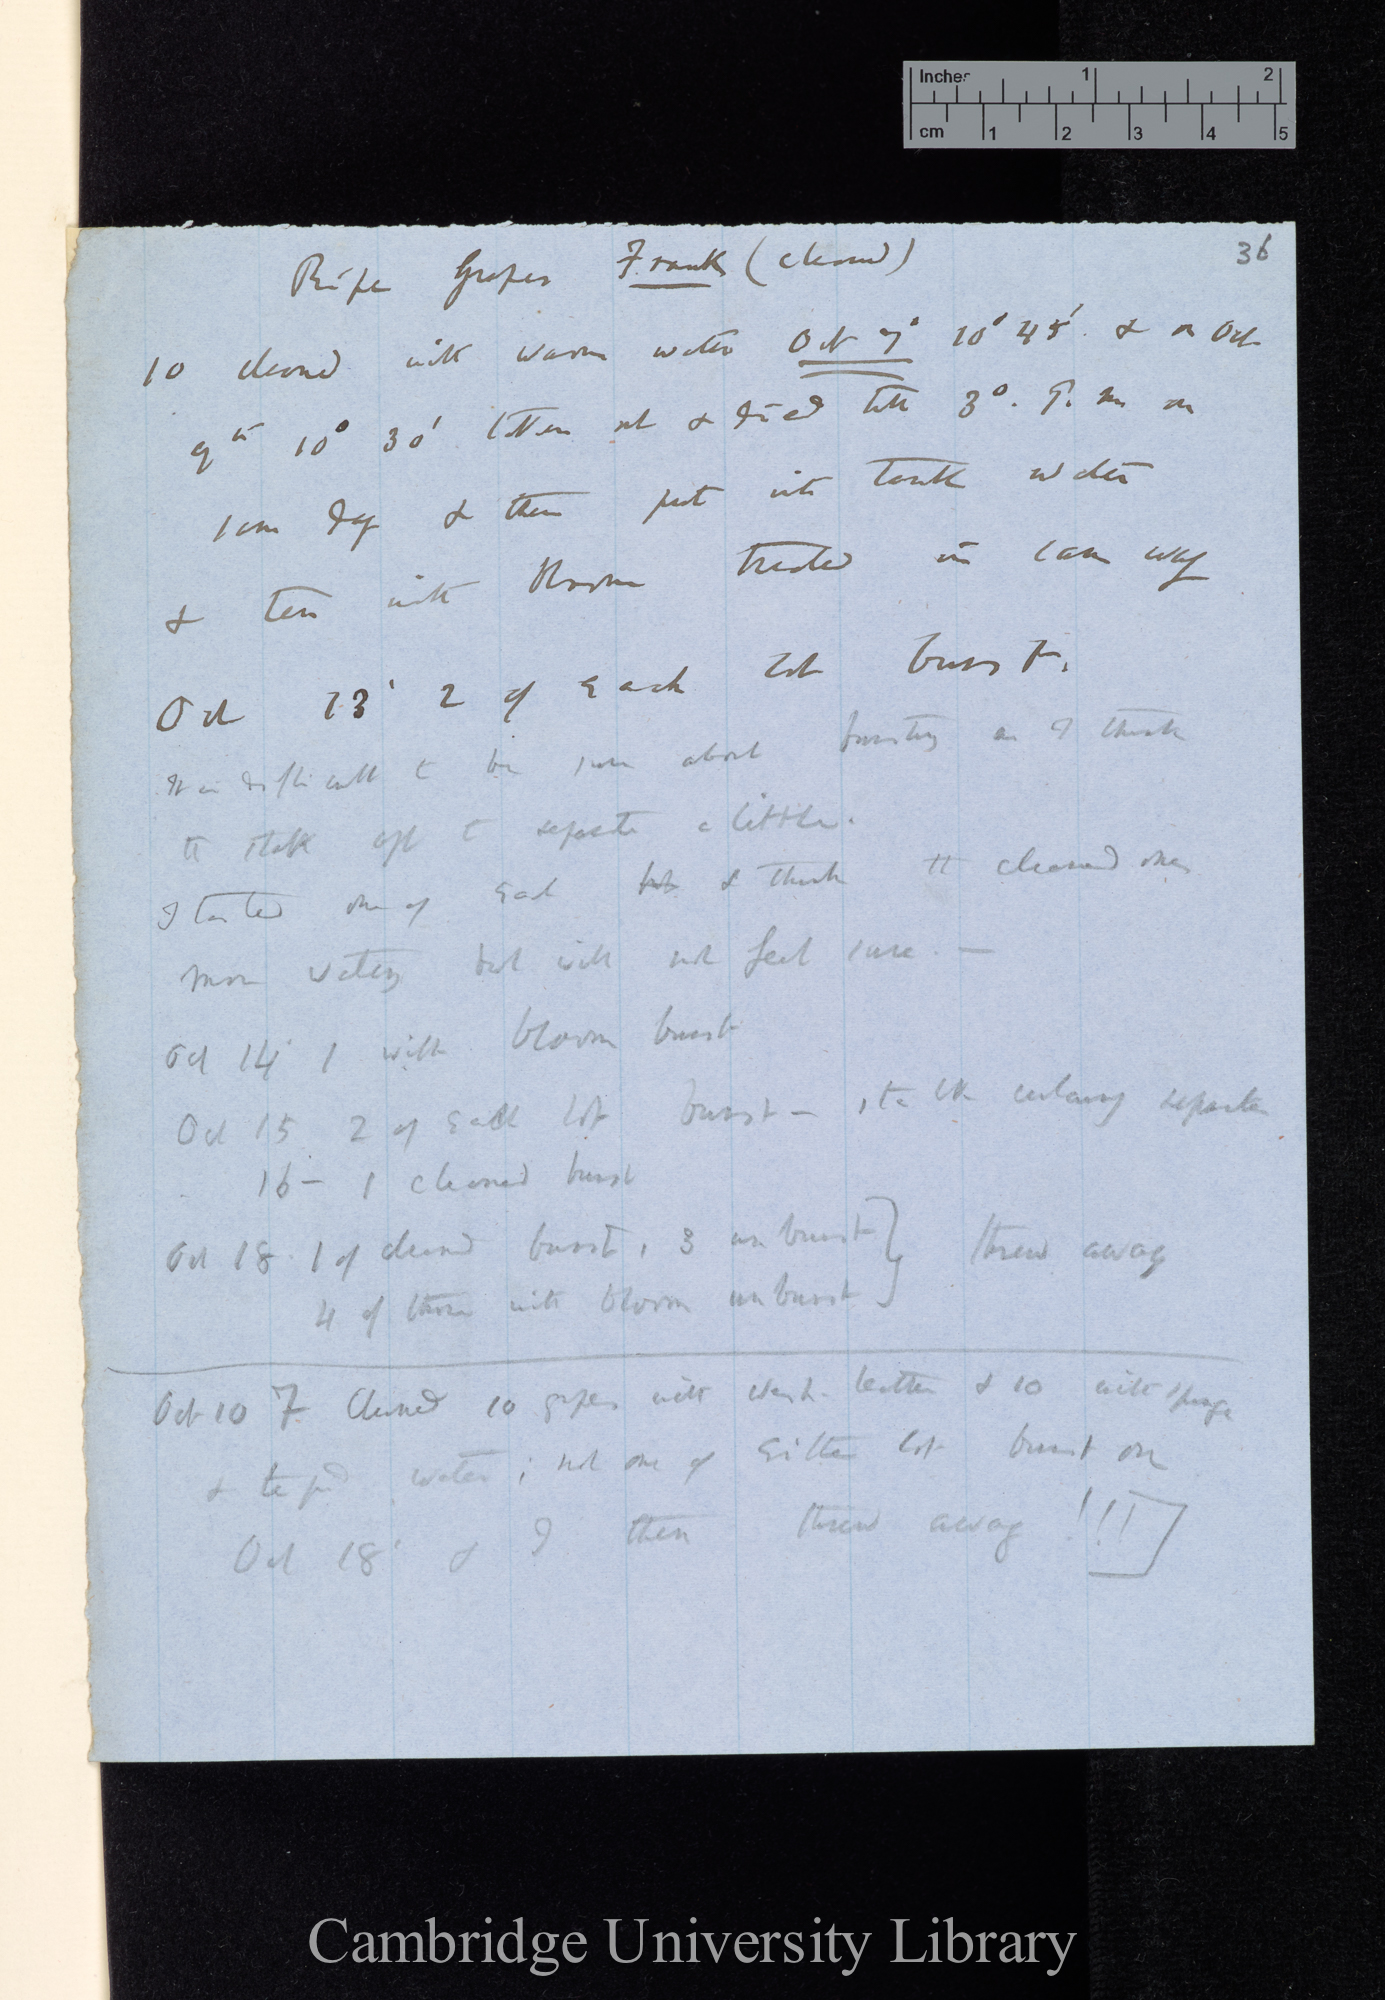 Inches 1 2
cm 1 2 3 4 5
36
Ripe Grapes Frank (cleaned)
10 cleaned with warm water Oct 7° 10° 45' & on Oct
9th 10° 30' taken out & dried till 3°. P. m on
same day & then put into tank water
& ten with bloom treated in same way
Oct 13' 2 of each lot burst.
It is difficult to be sure about bursting as I think
the stalk apt to separate a little.
I tasted one of each lot & think the cleaned ones
more watery but will not feel sure. —
Oct 14' 1 with bloom burst
Oct 15 2 of each lot burst — stalk certainly separates
16 — 1 cleaned burst
Oct 18. 1 of cleaned burst, 3 unburst } threw away
4 of those with bloom unburst
Oct 10 F Cleaned 10 grapes with wash-leather & 10 with sponge
& tepid water; not one of either lot burst on
Oct 18' & I then threw away !!!]
Cambridge University Library